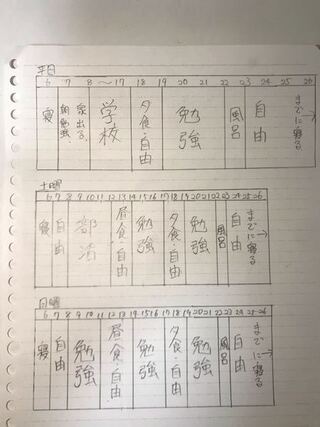 平日
6 7 8 〜 17 18 19 20 21 22 23 24 25 26
寝 朝勉強 家出る 学校 夕食・自由 勉強 風呂 自由 までに寝る→
土曜
6 7 8 9 10 11 12 13 14 15 16 17 18 19 20 21 22 23 24 25 26
寝 自由 部活 昼食・自由 勉強 夕食・自由 勉強 風呂 自由 までに寝る→
日曜
6 7 8 9 10 11 12 13 14 15 16 17 18 19 20 21 22 23 24 25 26
寝 自由 勉強 昼食・自由 勉強 夕食・自由 勉強 風呂 自由 までに寝る→